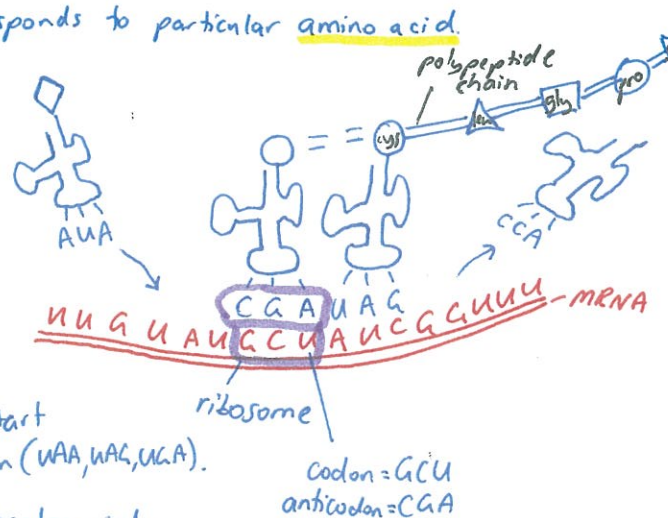 sponds to particular amino acid.
polypeptide
chain
cys
leu
gly
pro
AUA
CCA
CGAUAG
UUGUAUGCUAUCGGUUU
mRNA
ribosome
tart
n (UAA, UAG, UGA).
codon = GCU
anticodon = CGA